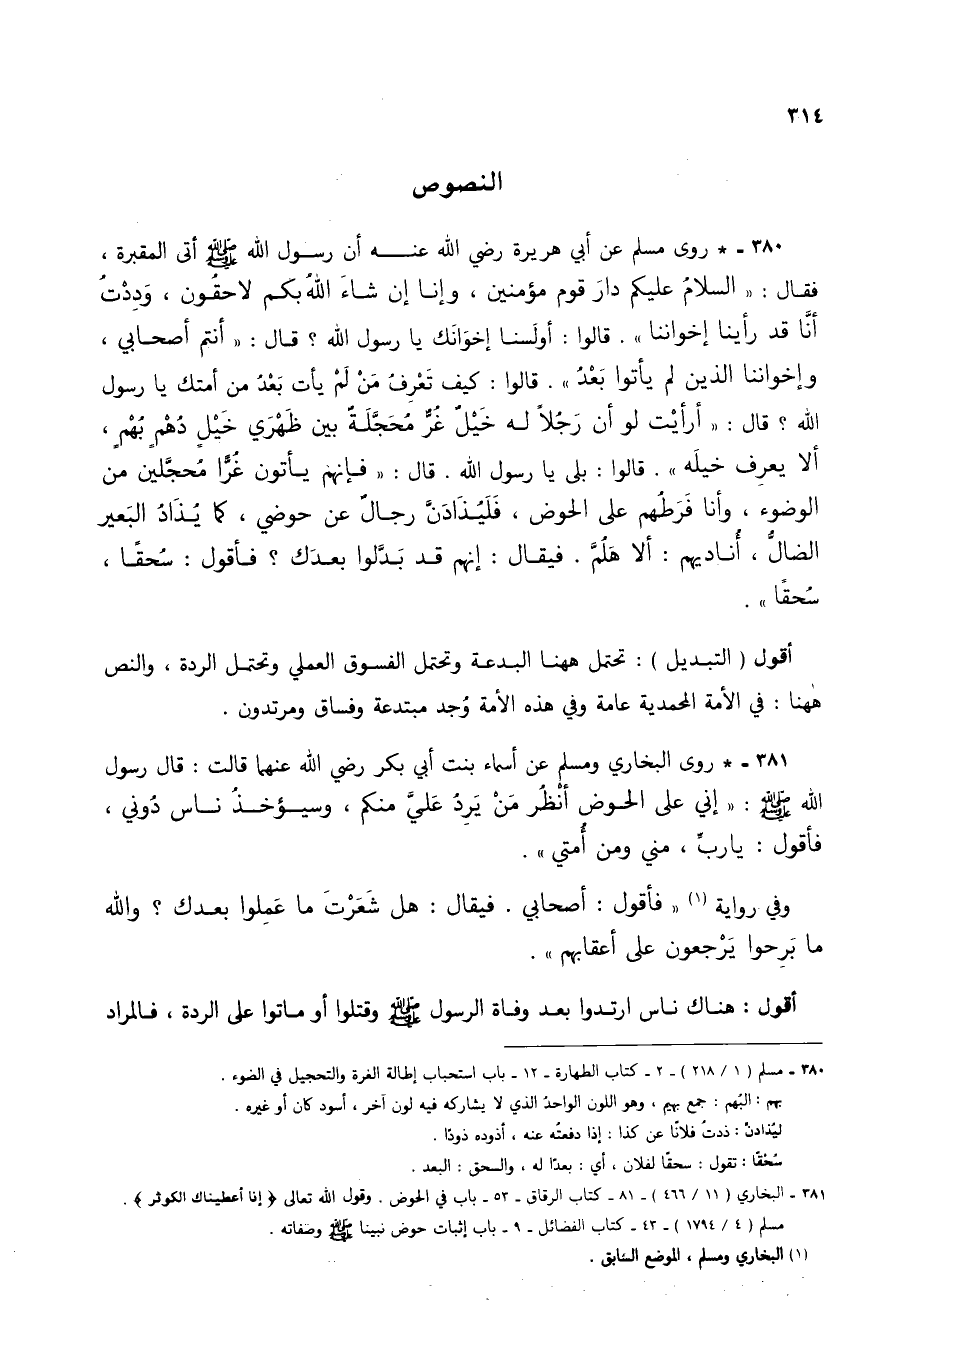 ٣١٤
النصوص
٣٨٠ - * روى مسلم عن أبي هريرة رضي الله عنه أن رسول الله ﷺ أتى المقبرة ،
فقال : « السلامُ عليكم دارَ قوم مؤمنين ، وإنا إن شاءَ اللهُ بكم لاحقُون ، وَدِدْتُ
أنَّا قد رأينا إخواننا » . قالوا : أولَسنا إخوَانَك يا رسول الله ؟ قال : « أنتم أصحابي ،
وإخواننا الذين لم يأتوا بَعْدُ » . قالوا : كيف تَعْرِفُ مَنْ لَمْ يأت بَعْدُ من أمتك يا رسول
الله ؟ قال : « أرأيْت لو أن رَجُلاً له خَيْلٌ غُرٌّ مُحَجَّلَةٌ بين ظَهْرَي خَيْلٍ دُهْمٍ بُهْمٍ ،
ألا يعرِف خيلَه » . قالوا : بلى يا رسول الله . قال : « فإنهم يأتون غُرًّا مُحجَّلين من
الوضوء ، وأنا فَرَطُهم على الحوض ، فَلَيُذَادَنَّ رجالٌ عن حوضي ، كما يُذَادُ البَعير
الضالُّ ، أُناديهم : ألا هَلُمَّ . فيقال : إنهم قد بَدَّلوا بعدَك ؟ فأقول : سُحقًا ،
سُحقًا » .
أقول ( التبديل ) : تحتمل ههنا البدعة وتحتمل الفسوق العملي وتحتمل الردة ، والنص
ههنا : في الأمة المحمدية عامة وفي هذه الأمة وُجد مبتدعة وفساق ومرتدون .
٣٨١ - * روى البخاري ومسلم عن أسماء بنت أبي بكر رضي الله عنهما قالت : قال رسول
الله ﷺ : « إني على الحوض أنْظُر مَنْ يَرِدُ عَليَّ منكم ، وسيؤخذُ ناس دُوني ،
فأقول : ياربِّ ، مني ومن أُمتي » .
وفي رواية (١) « فأقول : أصحابي . فيقال : هل شَعَرْتَ ما عَمِلوا بعدك ؟ والله
ما بَرِحوا يَرْجعون على أعقابهم » .
أقول : هناك ناس ارتدوا بعد وفاة الرسول ﷺ وقتلوا أو ماتوا على الردة ، فالمراد
٣٨٠ - مسلم ( ١ / ٢١٨ ) - ٢ - كتاب الطهارة - ١٢ - باب استحباب إطالة الغرة والتحجيل في الضوء .
بهم : البُهم : جمع بهيم ، وهو اللون الواحدُ الذي لا يشاركه فيه لون آخر ، أسود كان أو غيره .
ليُذادنْ : ذدتُ فلانًا عن كذا : إذا دفعتُه عنه ، أذوده ذودًا .
سُحْقًا : تقول : سحقًا لفلان ، أي : بعدًا له ، والسحق : البعد .
٣٨١ - البخاري ( ١١ / ٤٦٦ ) - ٨١ - كتاب الرقاق - ٥٣ - باب في الحوض . وقول الله تعالى ﴿ إنا أعطيناك الكوثر ﴾ .
مسلم ( ٤ / ١٧٩٤ ) - ٤٣ - كتاب الفضائل - ٩ - باب إثبات حوض نبينا ﷺ وصفاته .
(١) البخاري ومسلم ، الموضع السابق .